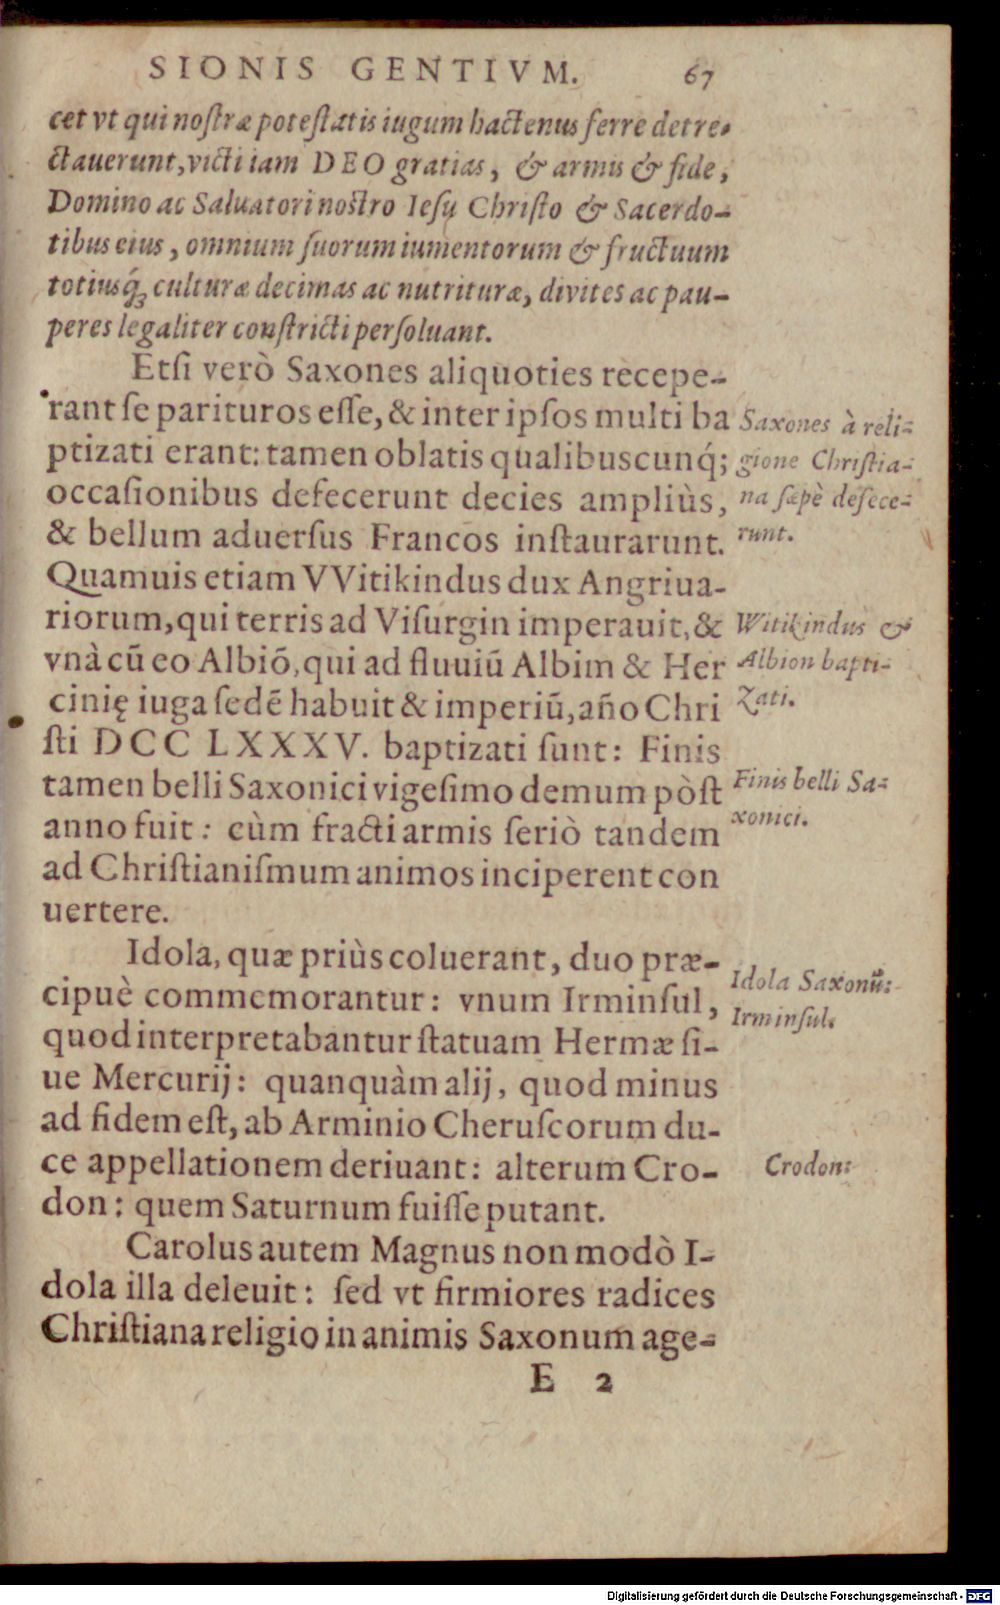 SIONIS GENTIVM. 67
cet vt qui nostræ potestatis iugum hactenus ferre detre-
ctauerunt, victi iam DEO gratias, & armis & fide,
Domino ac Saluatori nostro Iesu Christo & Sacerdo-
tibus eius, omnium suorum iumentorum & fructuum
totiusq́; culturæ decimas ac nutrituræ, divites ac pau-
peres legaliter constricti persoluant.
Etsi verò Saxones aliquoties recepe-
rant se parituros esse, & inter ipsos multi ba
ptizati erant: tamen oblatis qualibuscunq́;
occasionibus defecerunt decies ampliùs,
& bellum aduersus Francos instaurarunt.
Quamuis etiam VVitikindus dux Angriua-
riorum, qui terris ad Visurgin imperauit, &
vnà cũ eo Albiõ, qui ad fluuiũ Albim & Her
cinię iuga sedẽ habuit & imperiũ, año Chri
sti DCC LXXXV. baptizati sunt: Finis
tamen belli Saxonici vigesimo demum pòst
anno fuit: cùm fracti armis seriò tandem
ad Christianismum animos inciperent con
uertere.
Idola, quæ priùs coluerant, duo præ-
cipuè commemorantur: vnum Irminsul,
quod interpretabantur statuam Hermæ si-
ue Mercurij: quanquàm alij, quod minus
ad fidem est, ab Arminio Cheruscorum du-
ce appellationem deriuant: alterum Cro-
don: quem Saturnum fuisse putant.
Carolus autem Magnus non modò I-
dola illa deleuit: sed vt firmiores radices
Christiana religio in animis Saxonum age-
E 2
Saxones à reli-
gione Christia-
na sæpè defece-
runt.
Witikindus &
Albion bapti-
zati.
Finis belli Sa-
xonici.
Idola Saxonũ:
Irminsul.
Crodon:
Digitalisierung gefördert durch die Deutsche Forschungsgemeinschaft - DFG